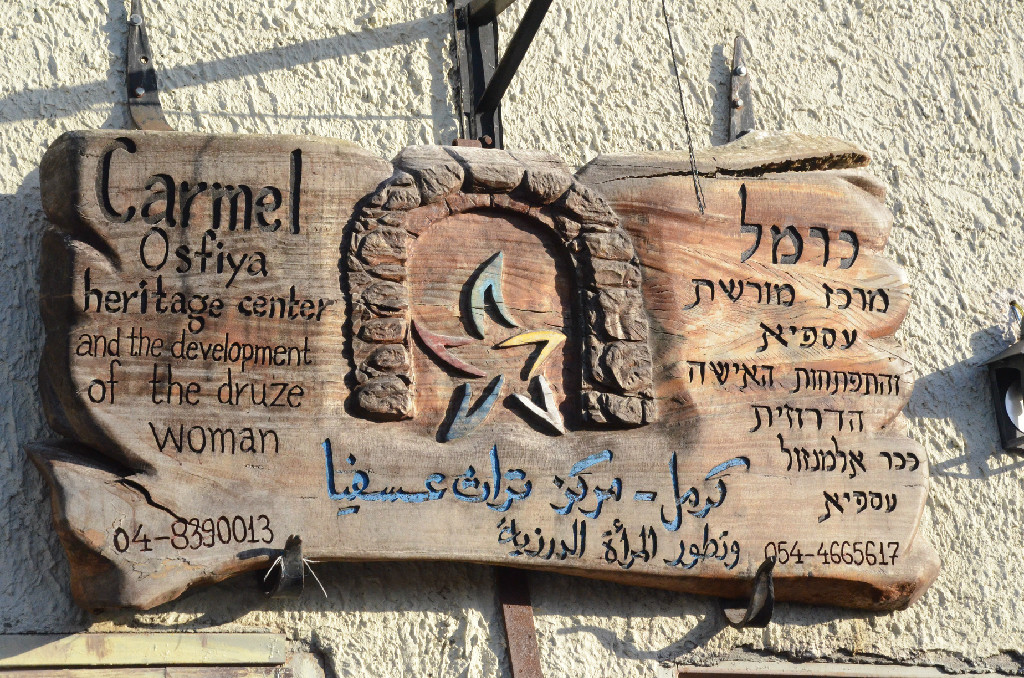 Carmel
Osfiya
heritage center
and the development
of the druze
woman
04-8390013
כרמל
מרכז מורשת
עספיא
והתפתחות האישה
הדרוזית
ככר אלמנזול
עספיא
054-4665617
كرمل - مركز تراث عسفيا
وتطور المرأة الدرزية